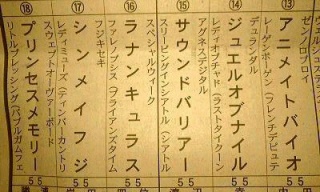 ゼンノロブロイ
⑬ アニメイトバイオ 55
レーゲンボーゲン(フレンチデピュテ
デュランダル
⑭ ジュエルオブナイル 55
レディオブチャド(ラストタイクーン)
アグネスデジタル
⑮ サウンドバリアー 55
スリーピングインシアトル(シアトル
スペシャルウィーク
⑯ ラナンキュラス 55
ファレノプシス(ブライアンズタイム
フジキセキ
⑰ シンメイフジ 55
レディミューズ(ティンバーカントリ
スウェプトオーヴァーボード
⑱ プリンセスメモリー 55
リトルブレッシング(バブルガムフェ